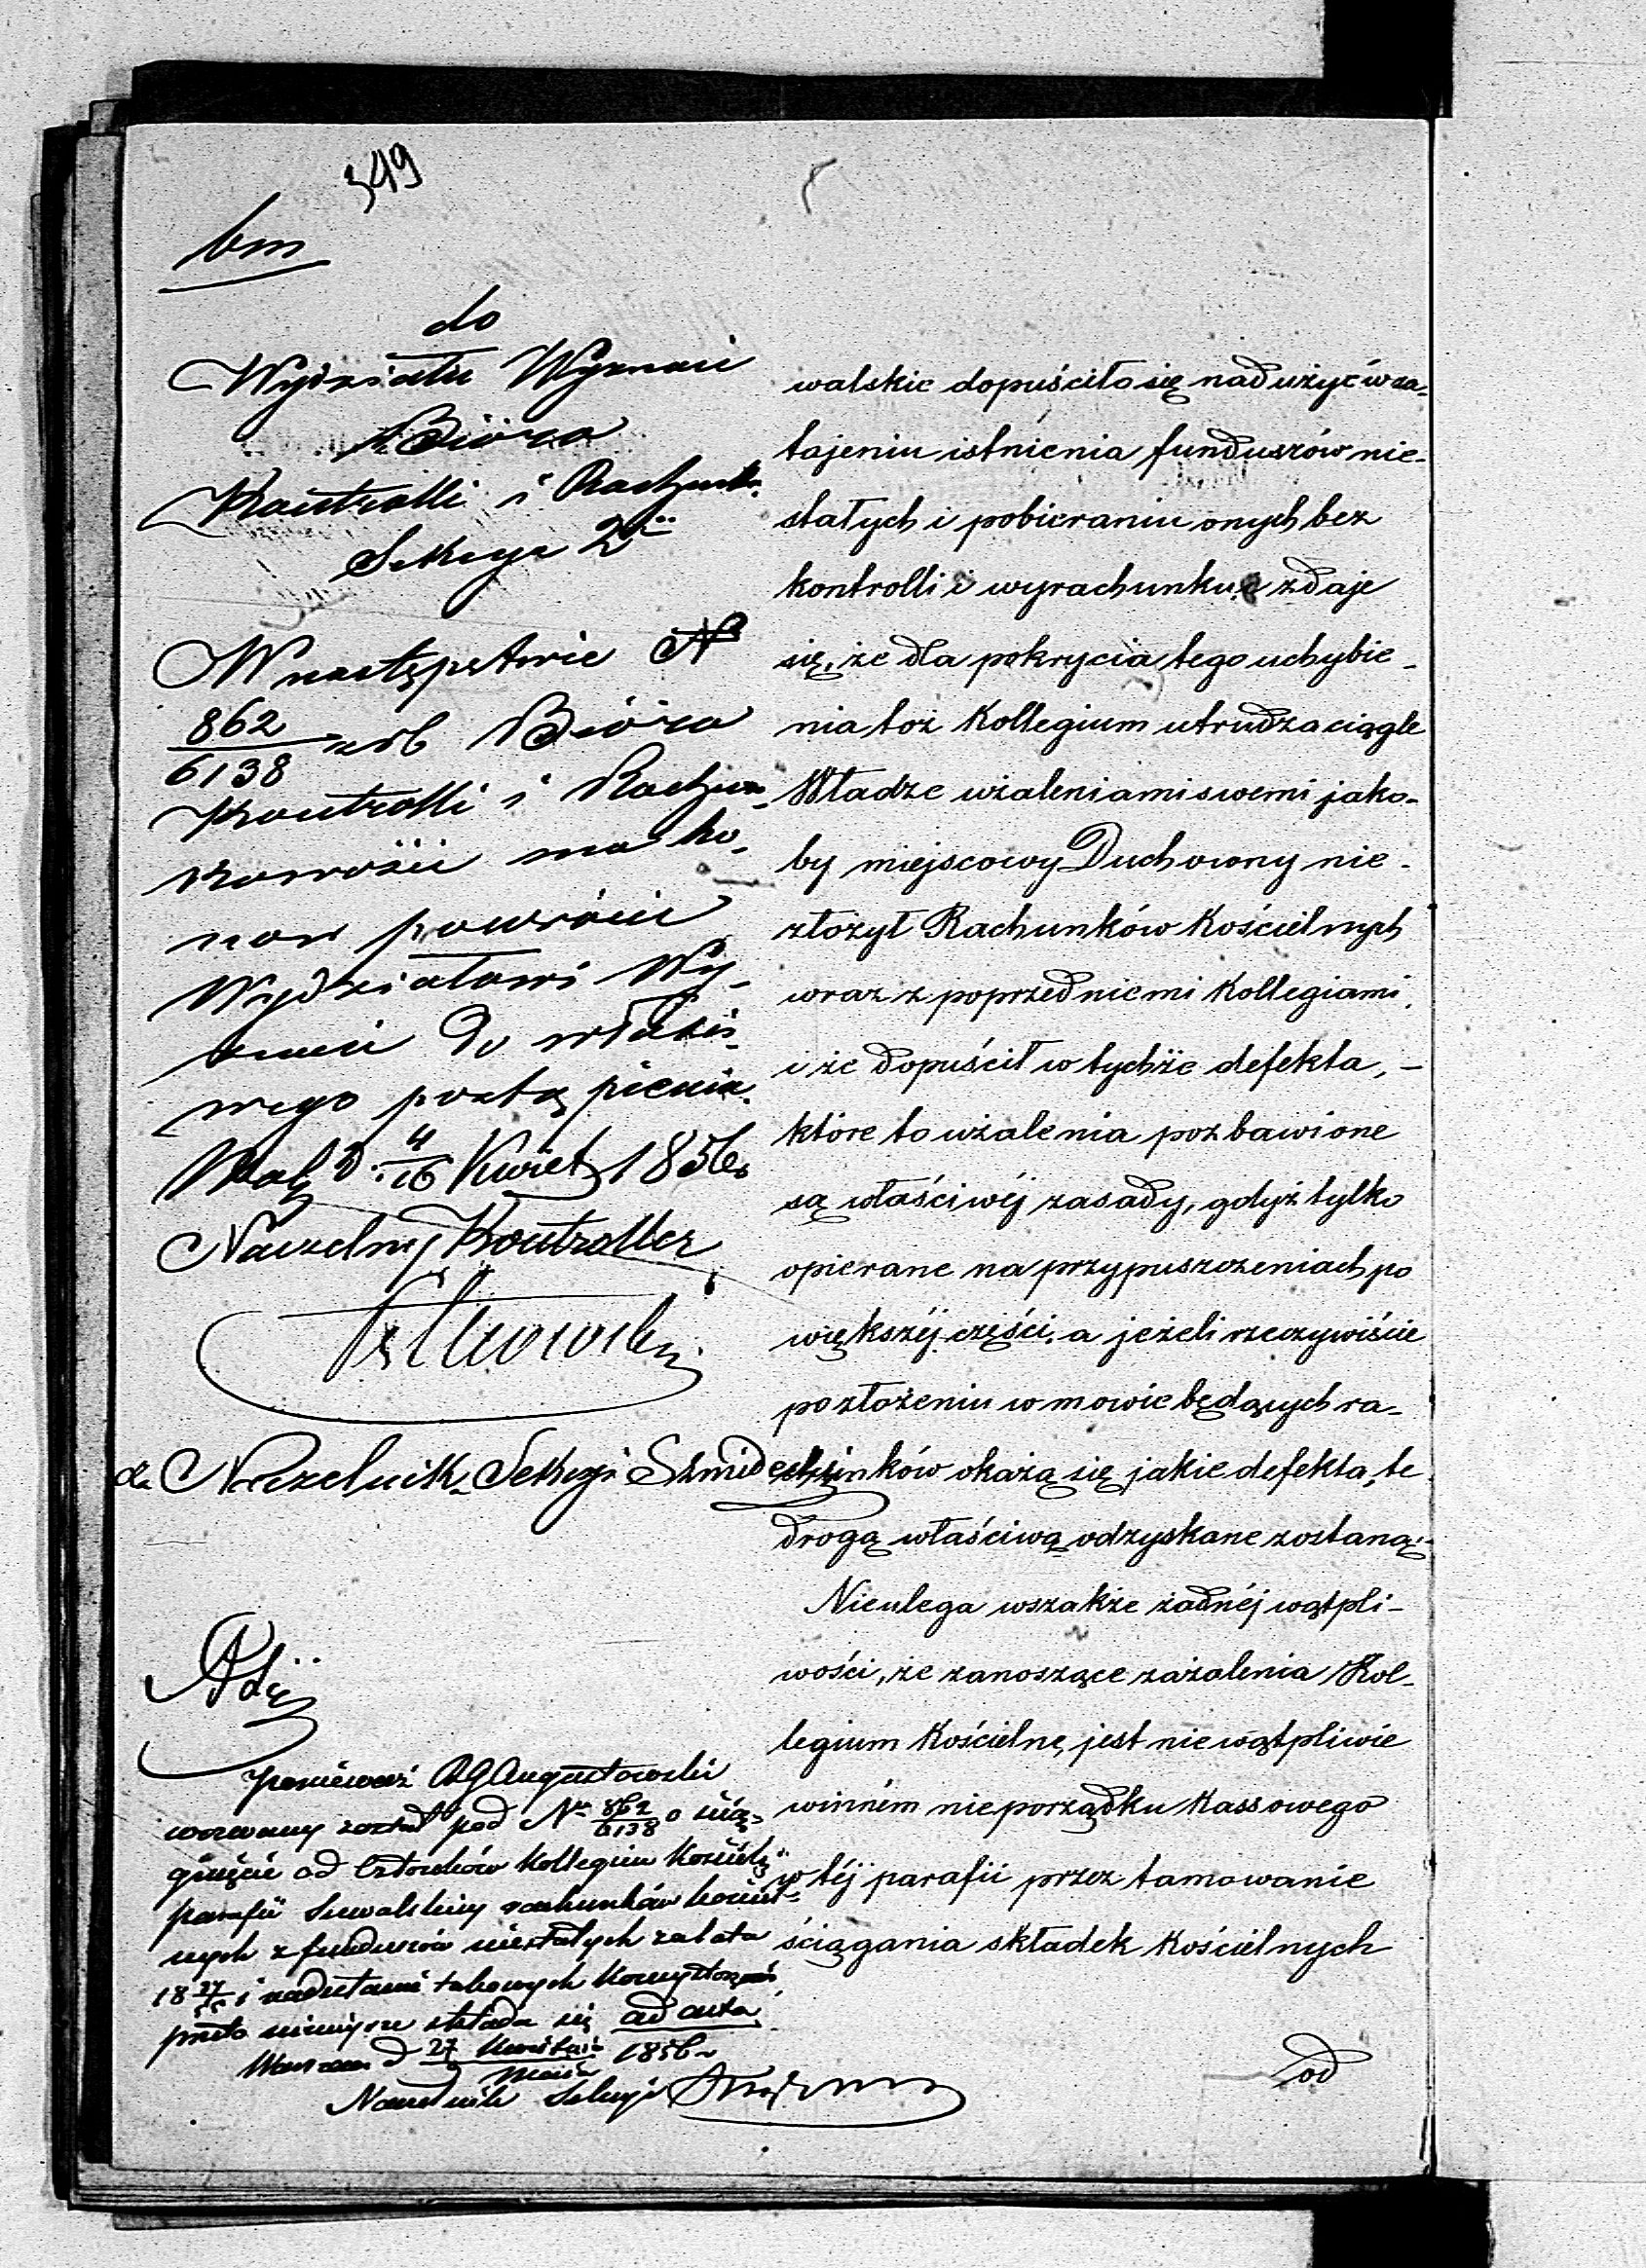 349
bm
do
Wydziału Wyznań
Bióro
Kontrolli i Rachunk.
Sekcya 2
W następstwie N
862/6138 Bióro
Kontrolli i Rachun-
kowości ma ho-
nor powrócić
Wydziałowi Wy-
znań do właści-
wego postąpienia.
d. 4/16 Kwiet 1856
Naczelny Kontroller
Naczelnik Sekcyi Szmidecki
Ponieważ RG Augustowski
wezwany został pod N 862/6138 o ścią-
gnięcie od Członków Kollegium Kościel
parafii Suwalskiey rachunków kościel-
nych z funduszów niestałych za lata
18 i nadesłanie takowych
przeto niniejsze składa się ad acta
Warszawa d 27 Kwietnia/Maia 1856
Naczelnik Sekcyi
walskie dopuściło się nadużyć w za-
tajeniu istnienia funduszów nie-
stałych i pobieraniu onych bez
kontrolli i wyrachunku, zdaje
się, że dla pokrycia tego uchybie-
nia toż Kollegium utrudza ciągle
Władze użaleniami swemi jako-
by miejscowy Duchowny nie-
złożył Rachunków Kościelnych
wraz z poprzedniemi Kollegiami,
i że dopuścił w tychże defekta, –
które to użalenia pozbawione
są właściwéj zasady, gdyż tylko
opierane na przypuszczeniach po
większéj części, a jeżeli rzeczywiście
po złożeniu w mowie będących ra-
chunków okażą się jakie defekta, te
drogą właściwą odzyskane zostaną.-
Nieulega wszakże żadnéj wątpli-
wości, że zanoszące zażalenia Kol-
legium Kościelne, jest niewątpliwie
winném nieporządku Kassowego
w téj parafii przez tamowanie
ściągania składek Kościelnych
od